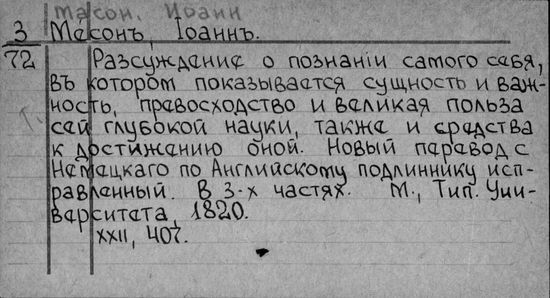 Масон. Иоанн
3 Масонъ, Іоаннъ.
72 Разсуждение о познаніи самого себя,
въ котором показывается сущность и важ-
ность, превосходство и великая польза
сей глубокой науки, также и средства
к достижению оной. Новый перевод с
Немецкаго по Английскому подлиннику исп-
равленный. В 3-х частях. М., Тип. Уни-
верситета, 1820.
XXII, 407.